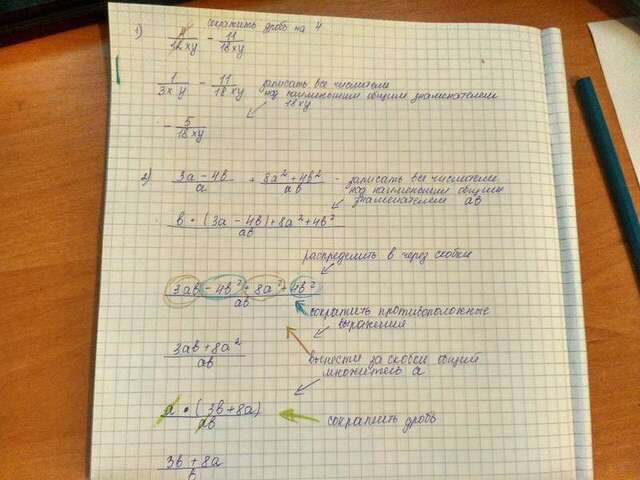 сократить дробь на 4
1) 4/12xy - 11/18xy
1/3xy - 11/18xy записать все числители
над наименьшим общим знаменателем
18xy
- 5/18xy
2) 3a - 4b/a + 8a² + 4b²/ab - записать все числители
над наименьшим общим
знаменателем ab
b • (3a - 4b) + 8a² + 4b²/ab
распределить b через скобки
3ab - 4b² + 8a² + 4b²/ab
сократить противоположные
выражения
3ab + 8a²/ab
вынести за скобки общий
множитель a
a • (3b + 8a)/ab
сократить дробь
3b + 8a/b